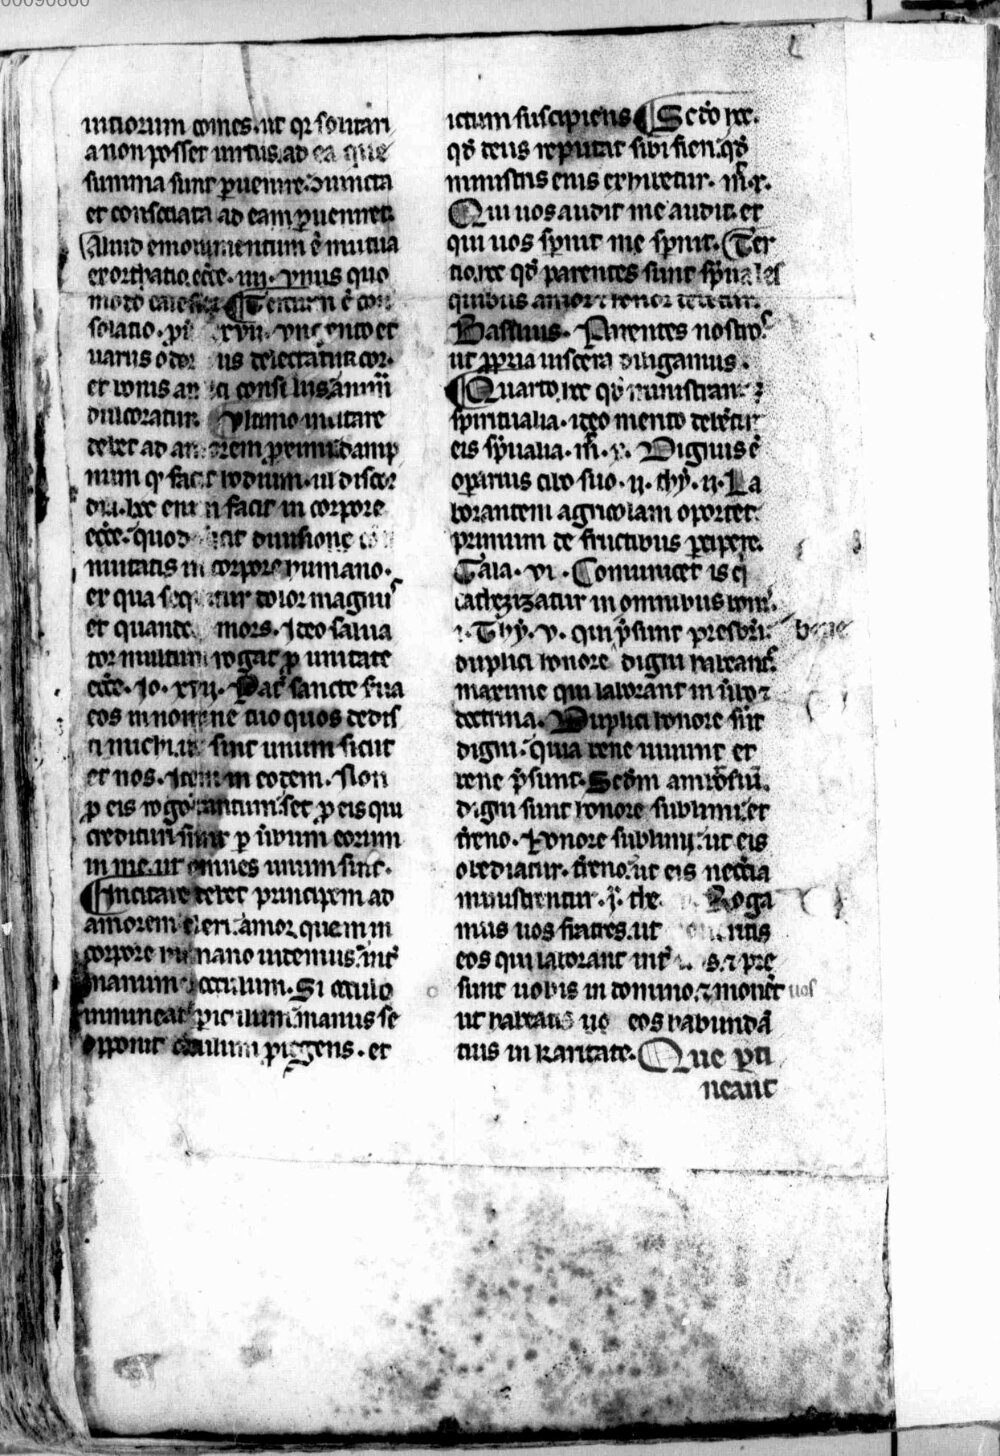 00090866
uitiorum comes. ut qr solitari
a non posset uirtus. ad ea que
summa sunt ꝑuenire. iuncta
et consociata ad eam ꝑueniret.
Aliud emolumentum ē mutua
exortatio. ecċe. iiij. Vnus quo
solatio. vngento et
uariis odor us delectatur cor.
et bonis ami ci consiliis anima
dulcoratur. Vltimo inuitare
debet ad amorem proximi damp
num qđ facit hodium. ul discor
dia. hec enim facit in corpore
ecċe. quod facit diuisione
nuitatis in corpore humano.
ex qua sequitur dolor magnus
et quande mors. Ideo salua
tor multum rogat ꝓ unitate
ecċe. Jo. xvii. Pat̄ sancte s̄ua
eos in nomine tuo quos dedis
ti michi. ut sint unum sicut
et nos. Item in eodem. Non
ꝓ eis rogo tantum. set ꝓ eis qui
credituri sunt ꝑ ūbum eorum
in me. ut omnes unum sint.
Incitare debet principem ad
amorem cleri. amor quem in
corpore humano uidemus. int̄
manum occulum. Si occulo
inmineat ꝑic̄lum. manus se
opponit occulum ꝓtegens. et
ictum suscipiens Scdo hec.
qđ deus reputat sibi fieri. qđ
ministris eius exhibetur. m̄. x.
Qui uos audit me audit. et
qui uos spernit me spernit. Ter
tio. hec qđ parentes sunt sp̄uales
quibus amor ⁊ honor debetur.
Basilius. Parentes nostros
ut ꝓpria uiscera diligamus.
Quarto. hec qđ ministrant
spiritualia. ideo merito debētur
eis sp̄ualia. m̄. x. Dignus ē
operarius cibo suo. ij. thȳ. ij. La
borantem agricolam oportet
primum de fructibus ꝑcipere.
Gala. vi. Comunicet is q̄
cathezizatur in omnibus bonis.
i. Thȳ. v. qui p̄sunt presbri. bene
duplici honore digni habeant̄
maxime qui laborant in ūbo ⁊
doctrina. Duplici honore sūt
digni. quia bene uiuunt et
bene p̄sunt. Scđm ambrosiū.
digni sunt honore sublimi. et
t̄reno. honore sublimi. ut eis
obediatur. t̄reno. ut eis neccia
ministrentur. j. the. v. Roga
mus uos fratres. ut
eos qui laborant int̄ uos. ⁊ pre
sunt uobis in domino. ⁊ monet̄ uos
ut habeatis eos habundā
tius in karitate. Que ꝑti
neant